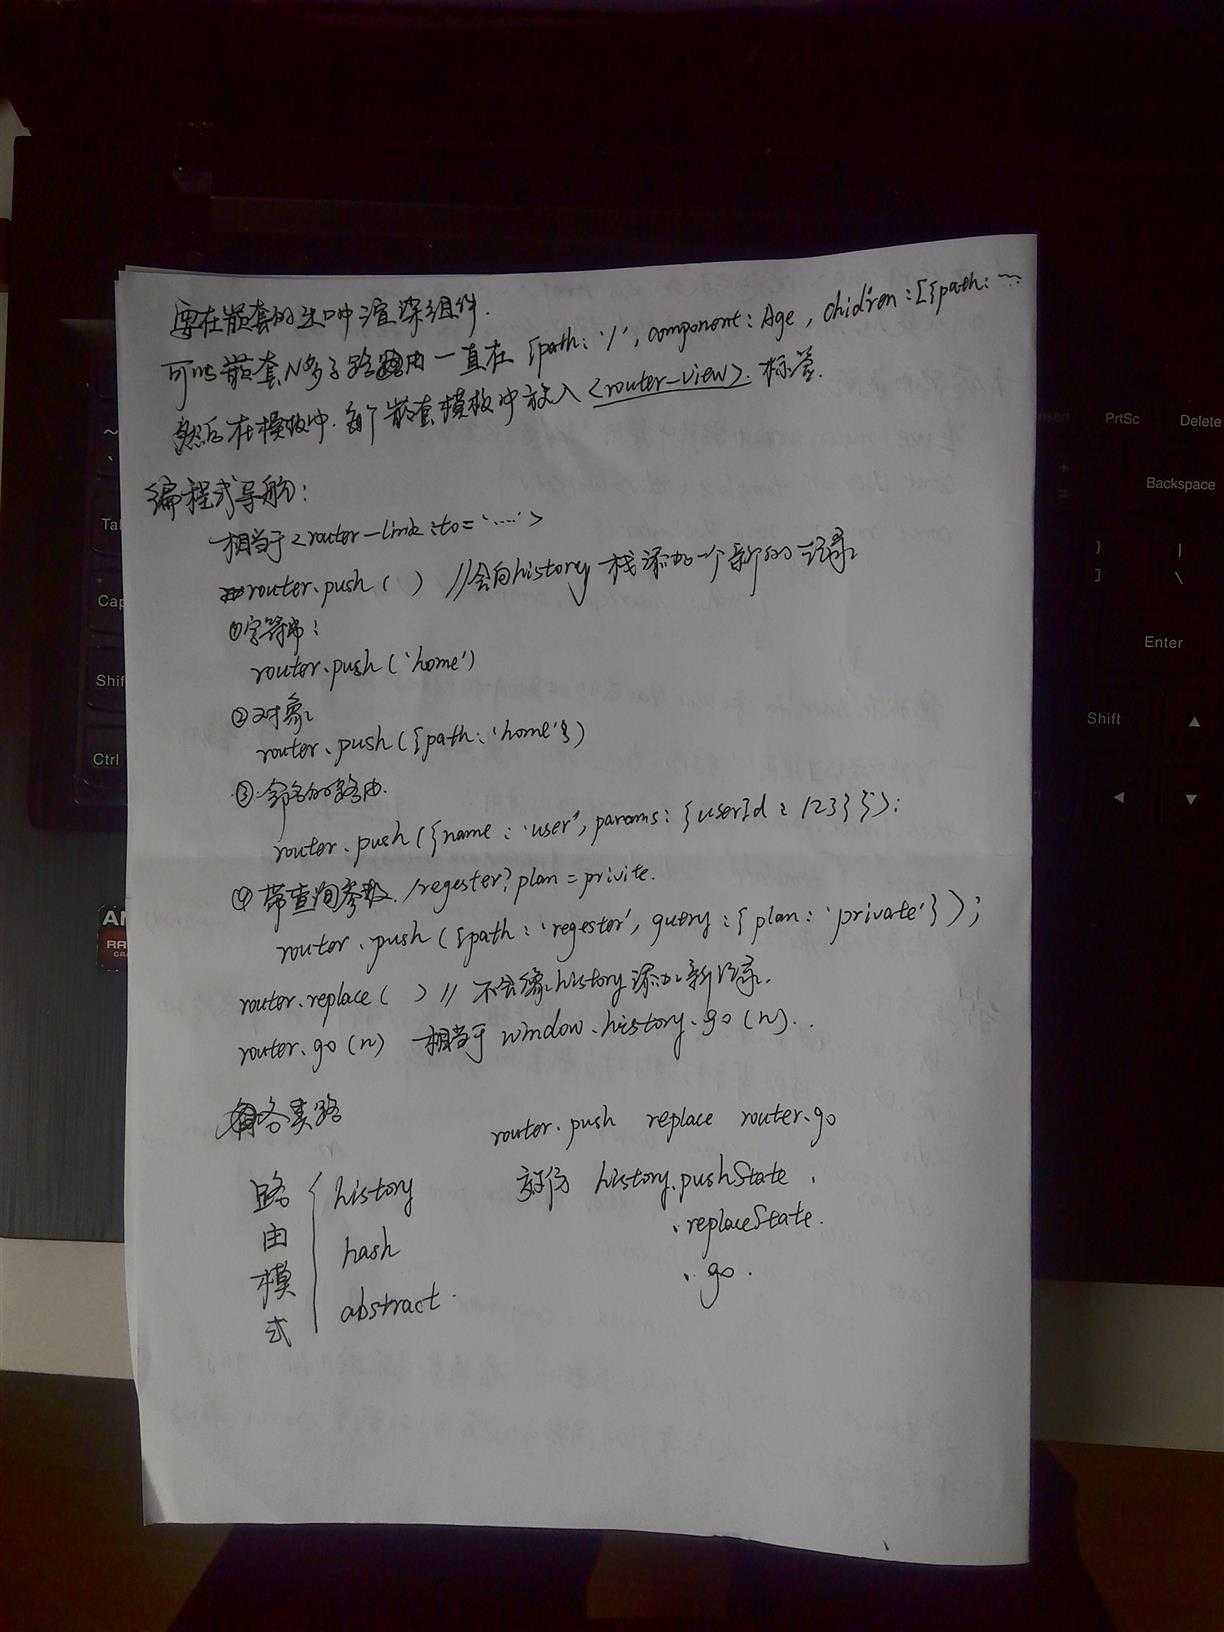 要在嵌套的出口中渲染组件.
可以嵌套N多子路由一直在 {path: '/', component: Age, chidren: [{path: ...
然后在模板中.每个嵌套模板中放入 <router-view>. 标签.
编程式导航:
相当于 <router-link :to='.....'>
router.push( ) //会向history 栈添加一个新的记录
①字符串:
router.push('home')
②对象
router.push({path: 'home'})
③命名的路由.
router.push({name: 'user', params: {userId: 123}});
④带查询参数. /regester?plan=privite.
router.push({path: 'regester', qutry: {plan: 'private'}});
router.replace( ) // 不会像history添加新记录.
router.go(n) 相当于 window.history.go(n).
router.push replace router.go
效仿 history.pushState.
.replaceState.
.go.
路由模式
history
hash
abstract.
PrtSc
Delete
Backspace
Enter
Shift
Ctrl